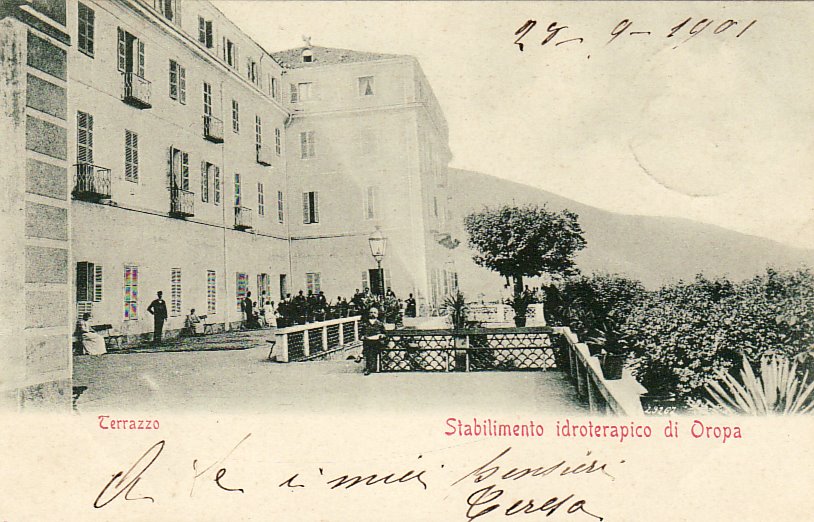 28-9-1901
Terrazzo
Stabilimento idroterapico di Oropa
A te i miei pensieri
Teresa